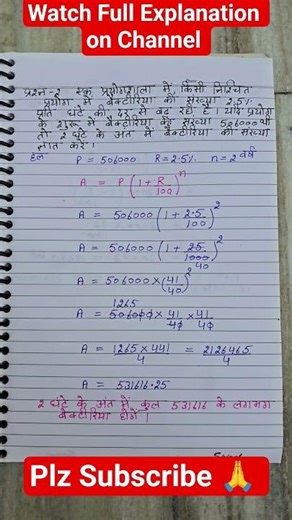 Watch Full Explanation
on Channel
प्रश्न-2 एक प्रयोगशाला में किसी निश्चित
प्रयोग में बैक्टीरिया की संख्या 2.5%
प्रति घंटे की दर से बढ़ रही है। यदि प्रयोग
के शुरू में बैक्टीरिया की संख्या 506000 थी
तो 2 घंटे के अंत में बैक्टीरिया की संख्या
ज्ञात करें।
हल P = 506000 R = 2.5% n = 2 वर्ष
A = P(1 + R/100)^n
A = 506000(1 + 2.5/100)^2
A = 506000(1 + 25/1000)^2
40
A = 506000 × (41/40)^2
1265
A = 506000 × 41/40 × 41/40
A = 1265 × 441/4 = 2126465/4
A = 531616.25
2 घंटे के अंत में कुल 531616 के लगभग
बैक्टीरिया होगें।
Plz Subscribe 🙏